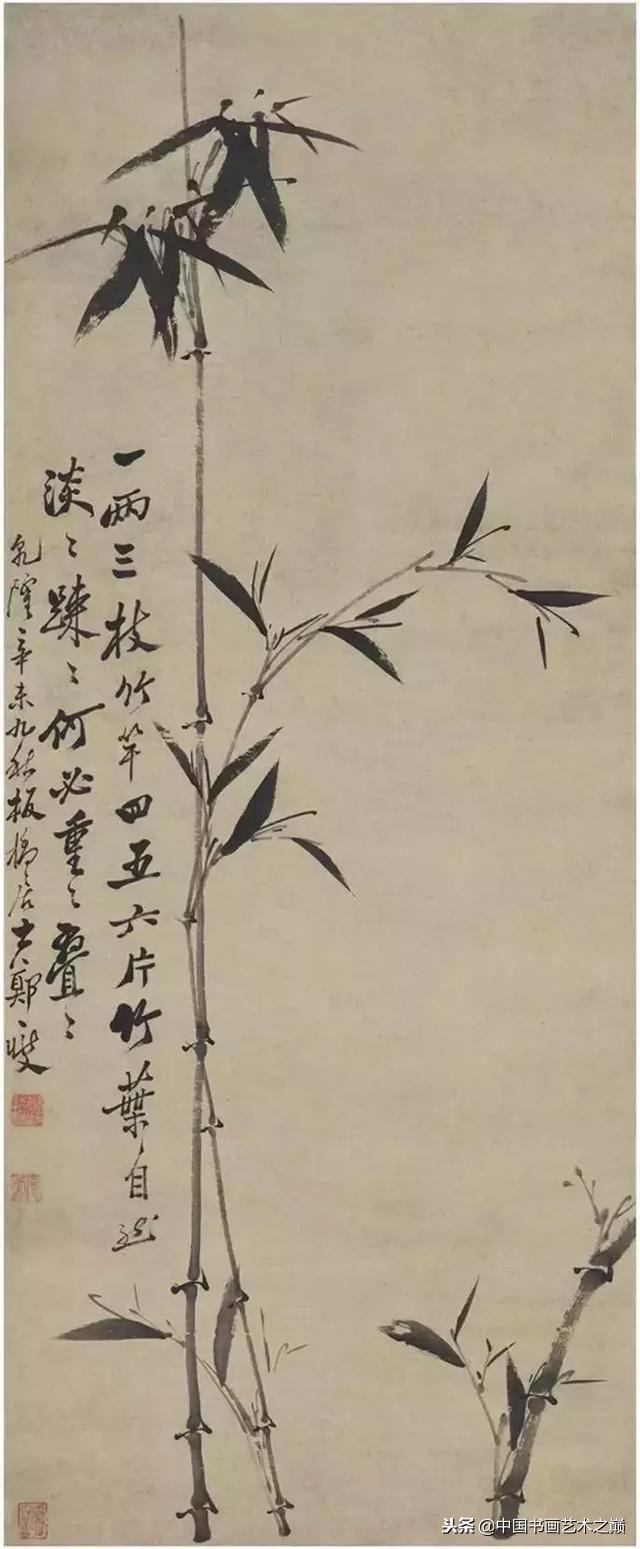 一两三枝竹竿四五六片竹葉自然
淡〻疎〻何必重〻疊〻
乾隆辛未九秋板橋居士鄭燮
头条@中国书画艺术之巅